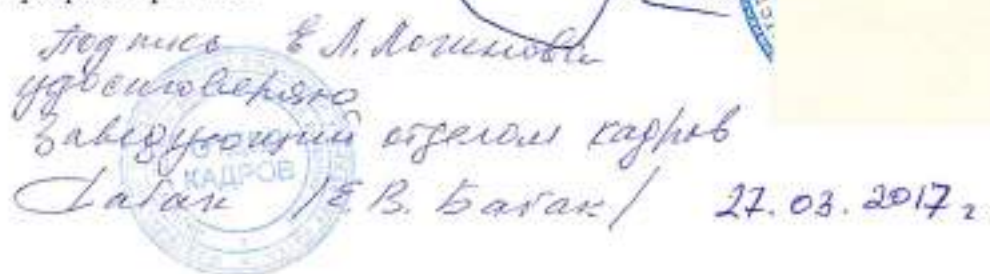 Подпись Е Л. Логинова
удостоверяю
Заведующий отделом кадров
КАДРОВ
/Е.В. Багак/ 27.03.2017г